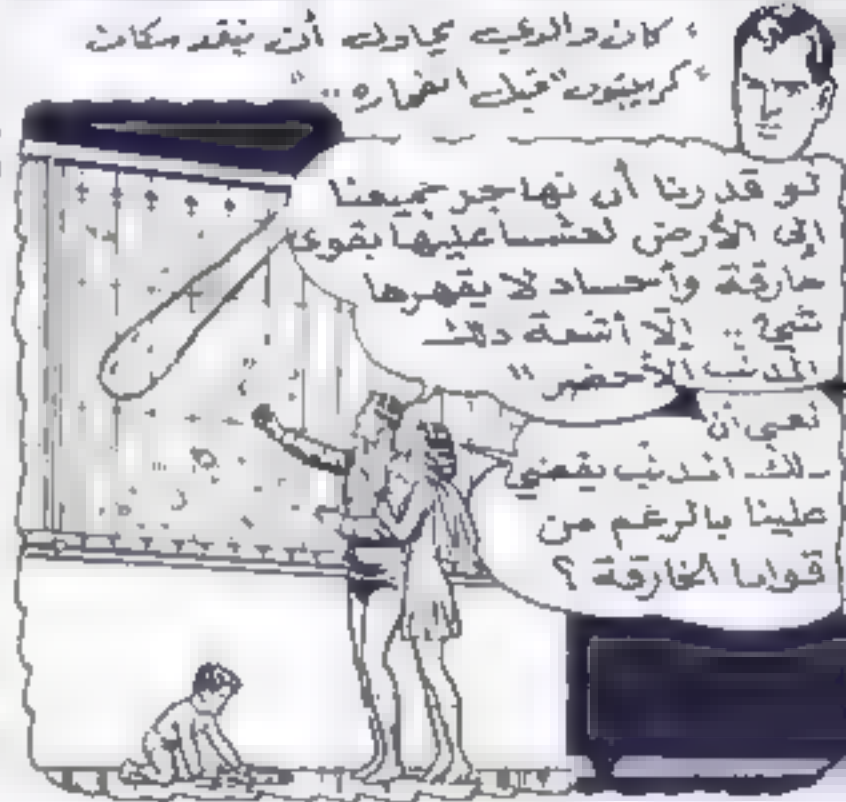 ، كان والدي يحاول أن ينقذ سكان
، كريبتون " قبل انفجاره .. "
لو قدرنا أن نهاجر جميعنا
إلى الأرض لعشنا عليها بقوى
خارقة وأجساد لا يقهرها
شيء .. إلا أشعة ذلك
المذنب الأخضر "
تعني أن
ذلك المذنب يقضي
علينا بالرغم من
قوانا الخارقة ؟